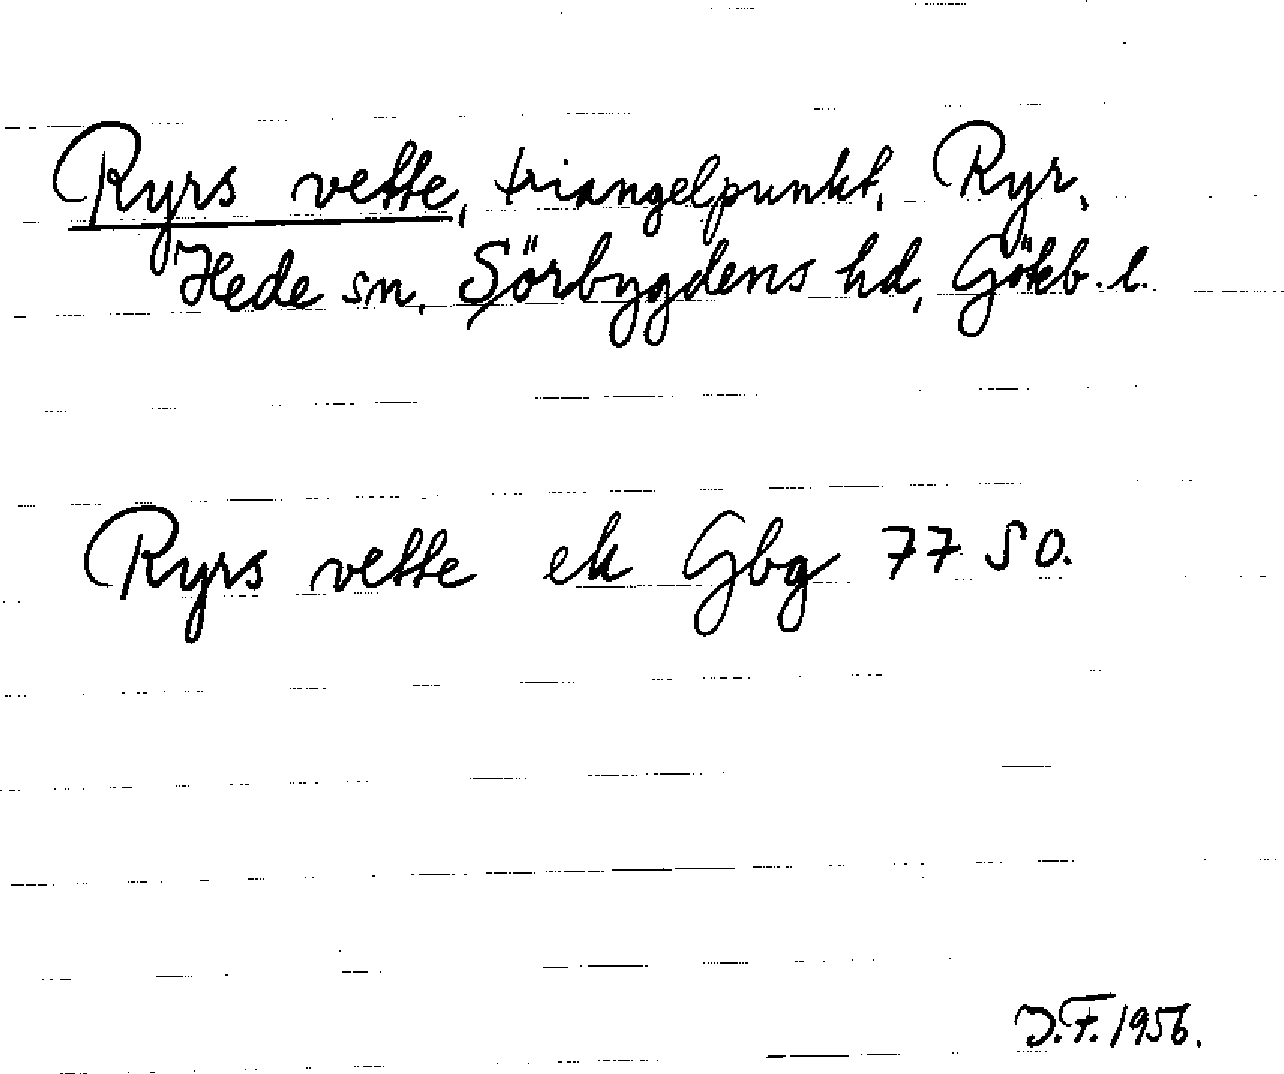 Ryrs vette, triangelpunkt, Ryr,
Hede sn, Sörbygdens hd, Gökb. l.
Ryrs vette ek Gbg 77 SO.
J.F. 1956.